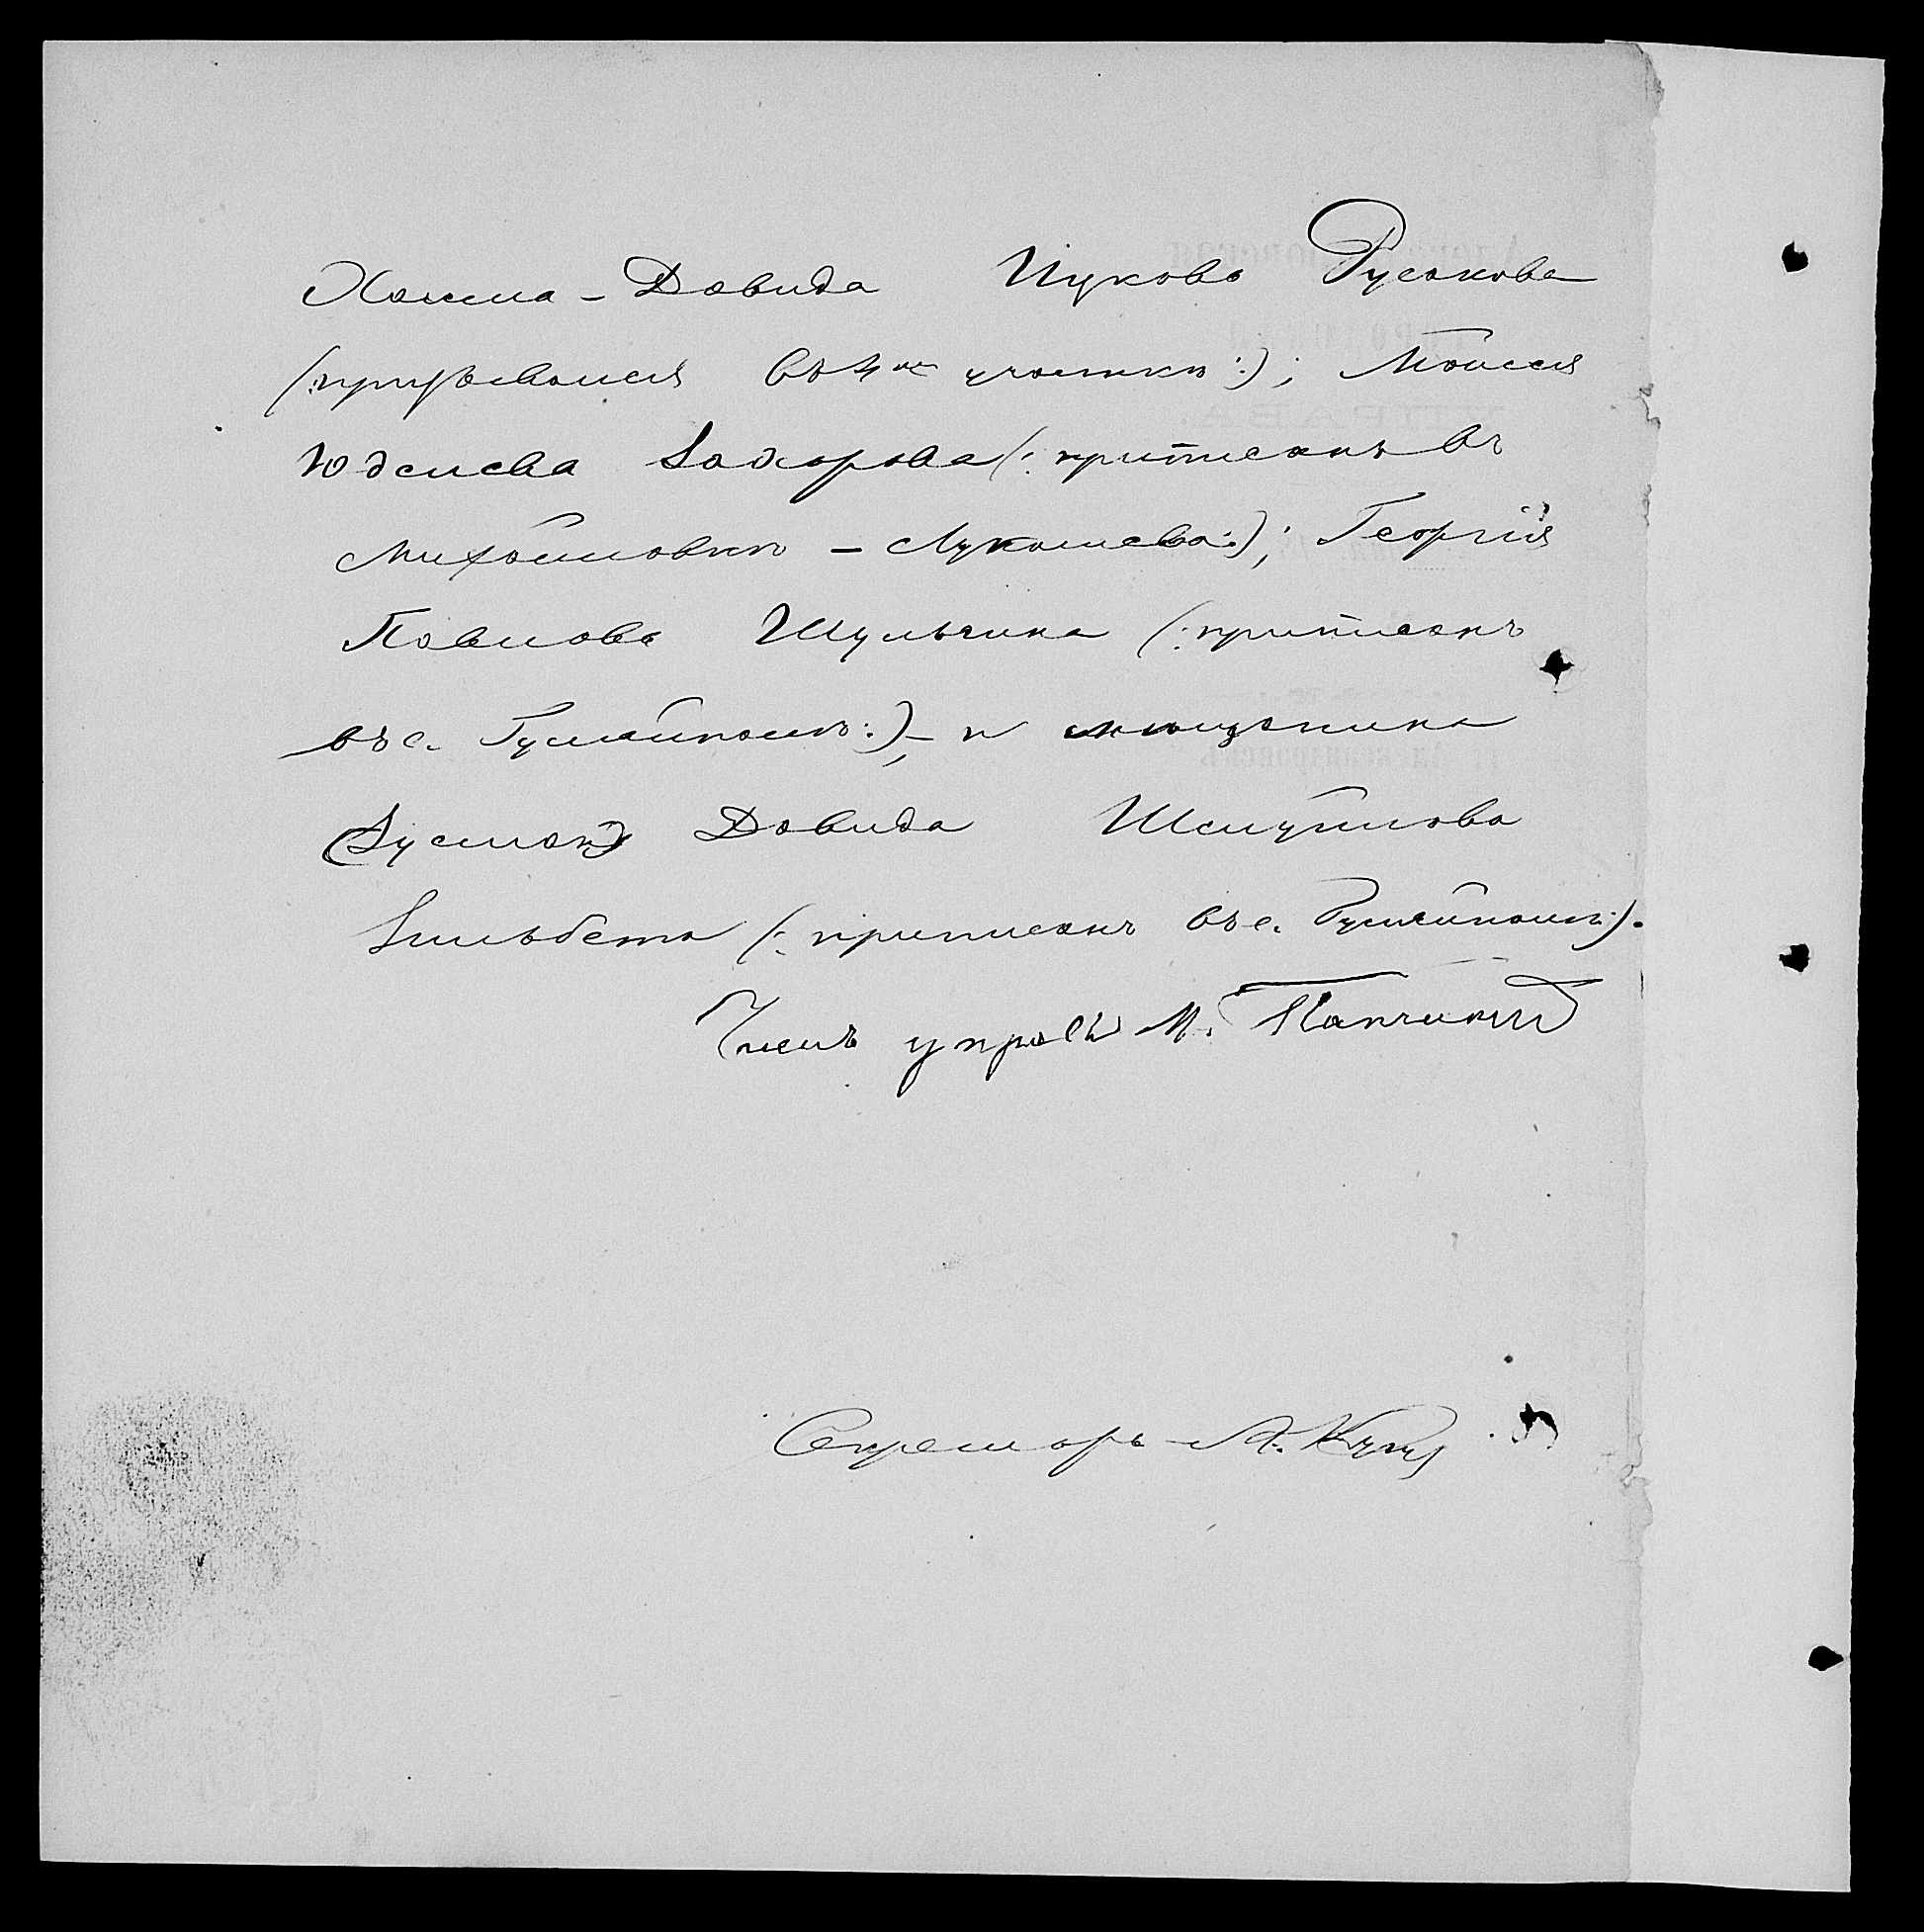 Хаима-Давида Ицкова Русакова
(:призывался въ 4мъ участкѣ:); Моисея
Юделева Захарова (:приписанъ въ
Михайловкѣ - Лукашева:); Георгія
Павлова Шульгина (:приписанъ
въ с. Гуляйполѣ:), - и мѣщанина
(Зусман) Давида Шмуйлова
(:приписанъ въ с. Гуляйполѣ:).
Членъ управы М.
Секретарь А.